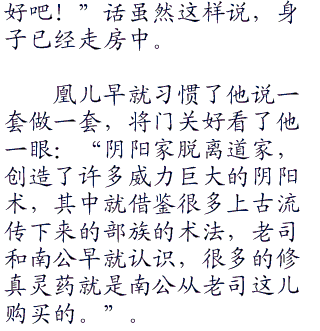 好吧！”话虽然这样说，身
子已经走房中。
凰儿早就习惯了他说一
套做一套，将门关好看了他
一眼：“阴阳家脱离道家，
创造了许多威力巨大的阴阳
术，其中就借鉴很多上古流
传下来的部族的术法，老司
和南公早就认识，很多的修
真灵药就是南公从老司这儿
购买的。”。